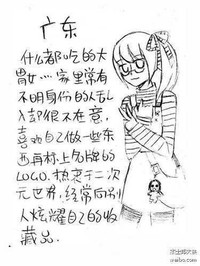 广东
什么都吃的大
胃女……家里常有
不明身份的人乱
入却很不在意,
喜欢自己做一些东
西再标上名牌的
LOGO.热衷于二次
元世界,经常向别
人炫耀自己的收
藏品.
weibo.com